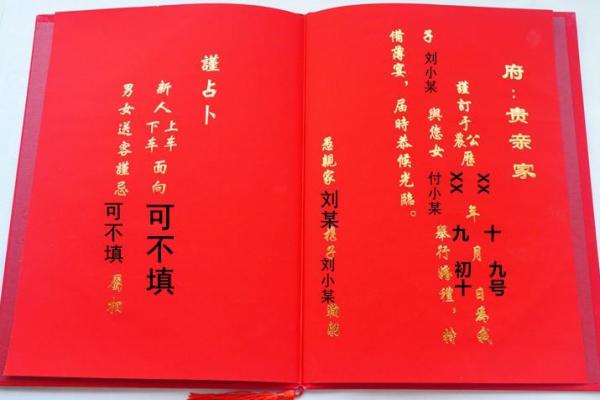 府：贵亲家
謹訂于公歷 XX 年 十 月 九号 日為我
農 XX 九 初十
子 刘小某 與您女 付小某 舉行婚禮，特
備薄宴，届時恭候光臨。
愚親家 刘某 携子 刘小某 敬邀
謹占卜
新人 上車 下車 面向 可不填
男女送客謹忌 可不填 屬相